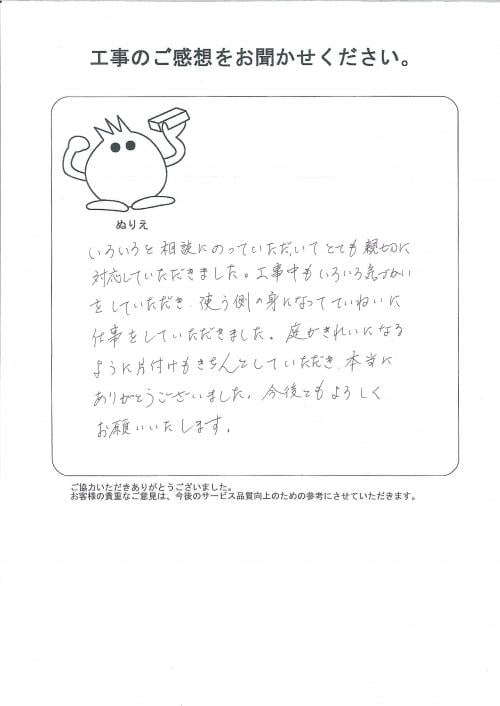 工事のご感想をお聞かせください。
ぬりえ
いろいろと相談にのっていただいてとても親切に
対応していただきました。工事中もいろいろ気づかい
をしていただき、使う側の身になってていねいに
仕事をしていただきました。庭がきれいになる
ように片付けもきちんとしていただき、本当に
ありがとうございました。今後ともよろしく
お願いいたします。
ご協力いただきありがとうございました。
お客様の貴重なご意見は、今後のサービス品質向上のための参考にさせていただきます。